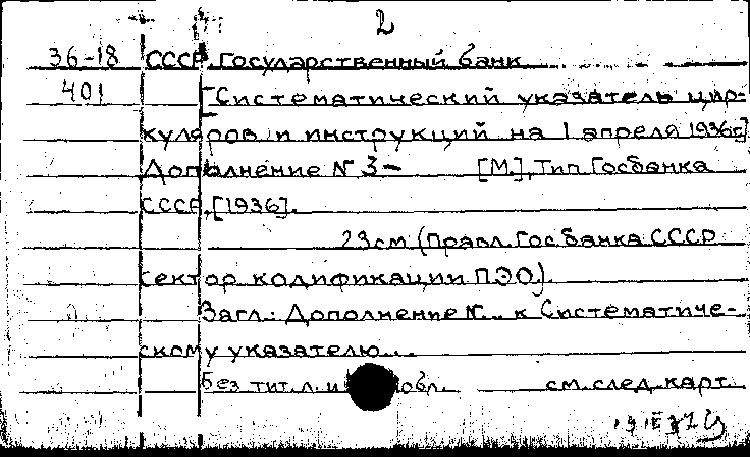 2
36-18 СССР. Государственный банк
401 [Систематический указатель цир-
куляров и инструкций на 1 апреля 1936г.]
Дополнение № 3- [М.], Тип. Госбанка
СССР, [1936].
23см (Правл. Госбанка СССР
Сектор кодификации ПЭО).
Загл.: Дополнение №... к Систематиче-
скому указателю...
Без тит. л. и обл. см. след. карт.